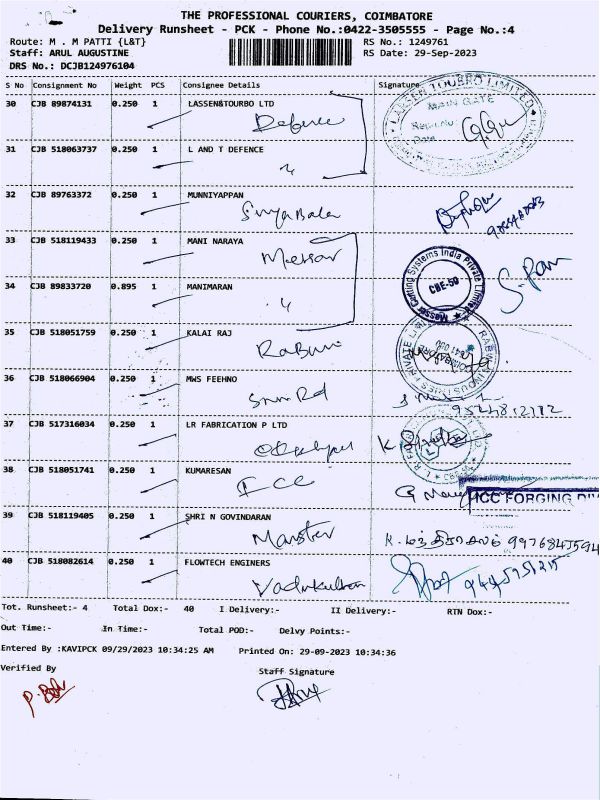 THE PROFESSIONAL COURIERS, COIMBATORE
Delivery Runsheet - PCK - Phone No.:0422-3505555 - Page No.:4
Route: M . M PATTI {L&T}
RS No.: 1249761
Staff: ARUL AUGUSTINE
RS Date: 29-Sep-2023
DRS No.: DCJB124976104
S No Consignment No Weight PCS Consignee Details Signature
30 CJB 89874131 0.250 1 LASSEN&TOURBO LTD
Defence
LARSEN TOUBRO LIMITED
MAIN GATE
Date
31 CJB 518063737 0.250 1 L AND T DEFENCE
32 CJB 89763372 0.250 1 MUNNIYAPPAN
SuryaBala
33 CJB 518119433 0.250 1 MANI NARAYA
Messer Cutting Systems India Private Limited
CBE-50
34 CJB 89833720 0.895 1 MANIMARAN
S. Ram
35 CJB 518051759 0.250 1 KALAI RAJ
36 CJB 518066904 0.250 1 MWS FEEHNO
37 CJB 517316034 0.250 1 LR FABRICATION P LTD
38 CJB 518051741 0.250 1 KUMARESAN
ICC
ICC FORGING
39 CJB 518119405 0.250 1 SHRI N GOVINDARAN
40 CJB 518082614 0.250 1 FLOWTECH ENGINERS
Tot. Runsheet:- 4 Total Dox:- 40 I Delivery:- II Delivery:- RTN Dox:-
Out Time:- In Time:- Total POD:- Delvy Points:-
Entered By :KAVIPCK 09/29/2023 10:34:25 AM Printed On: 29-09-2023 10:34:36
Verified By Staff Signature